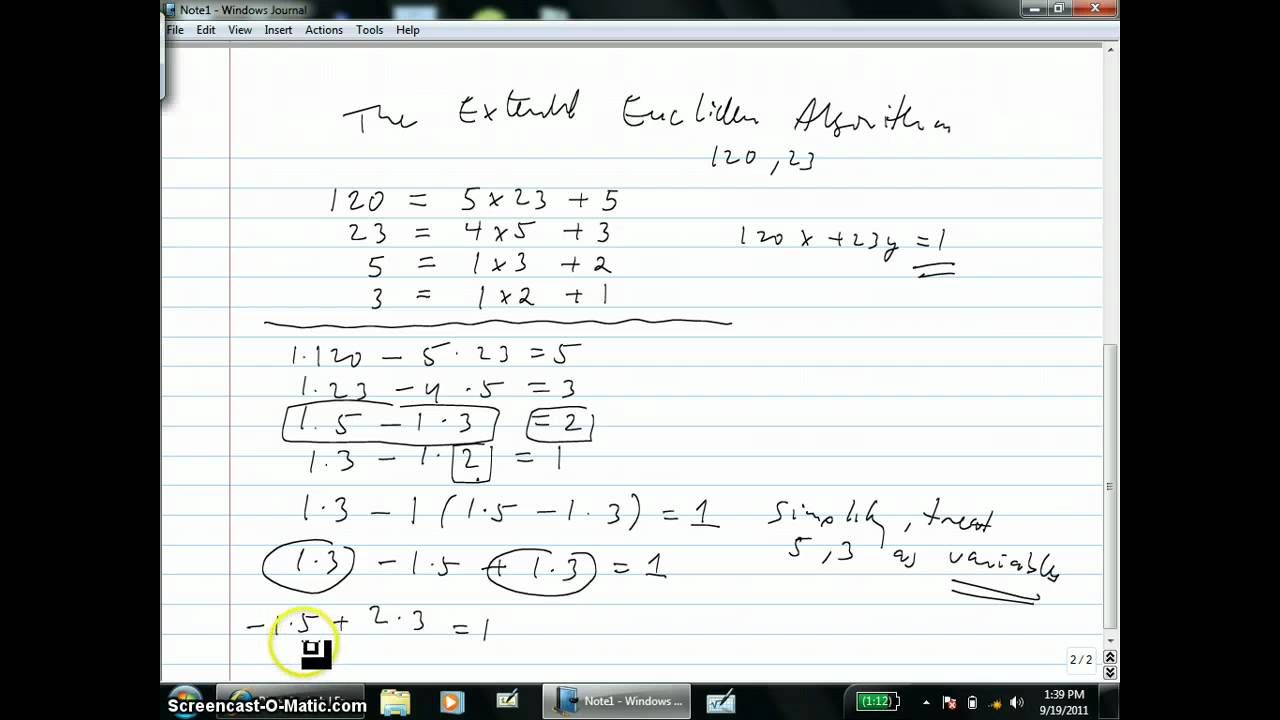 Note1 - Windows Journal
File Edit View Insert Actions Tools Help
The Extended Euclidean Algorithm
120, 23
120 = 5 × 23 + 5
23 = 4 × 5 + 3
120x + 23y = 1
5 = 1 × 3 + 2
3 = 1 × 2 + 1
1·120 - 5·23 = 5
1·23 - 4·5 = 3
1·5 - 1·3 = 2
1·3 - 1·2 = 1
1·3 - 1(1·5 - 1·3) = 1
simplify, treat
5, 3 as variables
1·3 - 1·5 + 1·3 = 1
-1·5 + 2·3 = 1
2 / 2
Note1 - Windows ...
(1:12)
1:39 PM
9/19/2011
Screencast-O-Matic.com